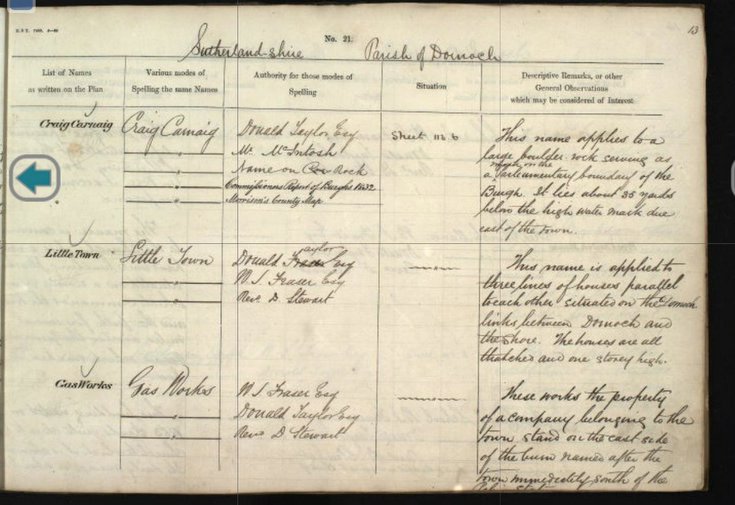 No. 21.
13
Sutherland-shire Parish of Dornoch
List of Names
as written on the Plan
Various modes of
Spelling the same Names
Authority for those modes of
Spelling
Situation
Descriptive Remarks, or other
General Observations
which may be considered of Interest
Craig Carnaig
Craig Carnaig
Donald Taylor Esq
Mr. McIntosh
Name on Rock
Commissioners Report of Burghs 1832
Morrison's County Map
Sheet 113. 6
This name applies to a
large boulder rock serving as
mark on the
a Parliamentary boundary of the
Burgh. It lies about 35 yards
below the high water mark due
east of the town.
Little Town
Little Town
Donald Taylor Esq
W S Fraser Esq
Revd. D. Stewart
This name is applied to
three lines of houses parallel
to each other situated on the Dornoch
links between Dornoch and
the shore. The houses are all
thatched and one storey high.
Gas Works
Gas Works
W S Fraser Esq
Donald Taylor Esq
Revd. D Stewart
These works the property
of a company belonging to the
town stand on the east side
of the burn named after the
town immediately south of the